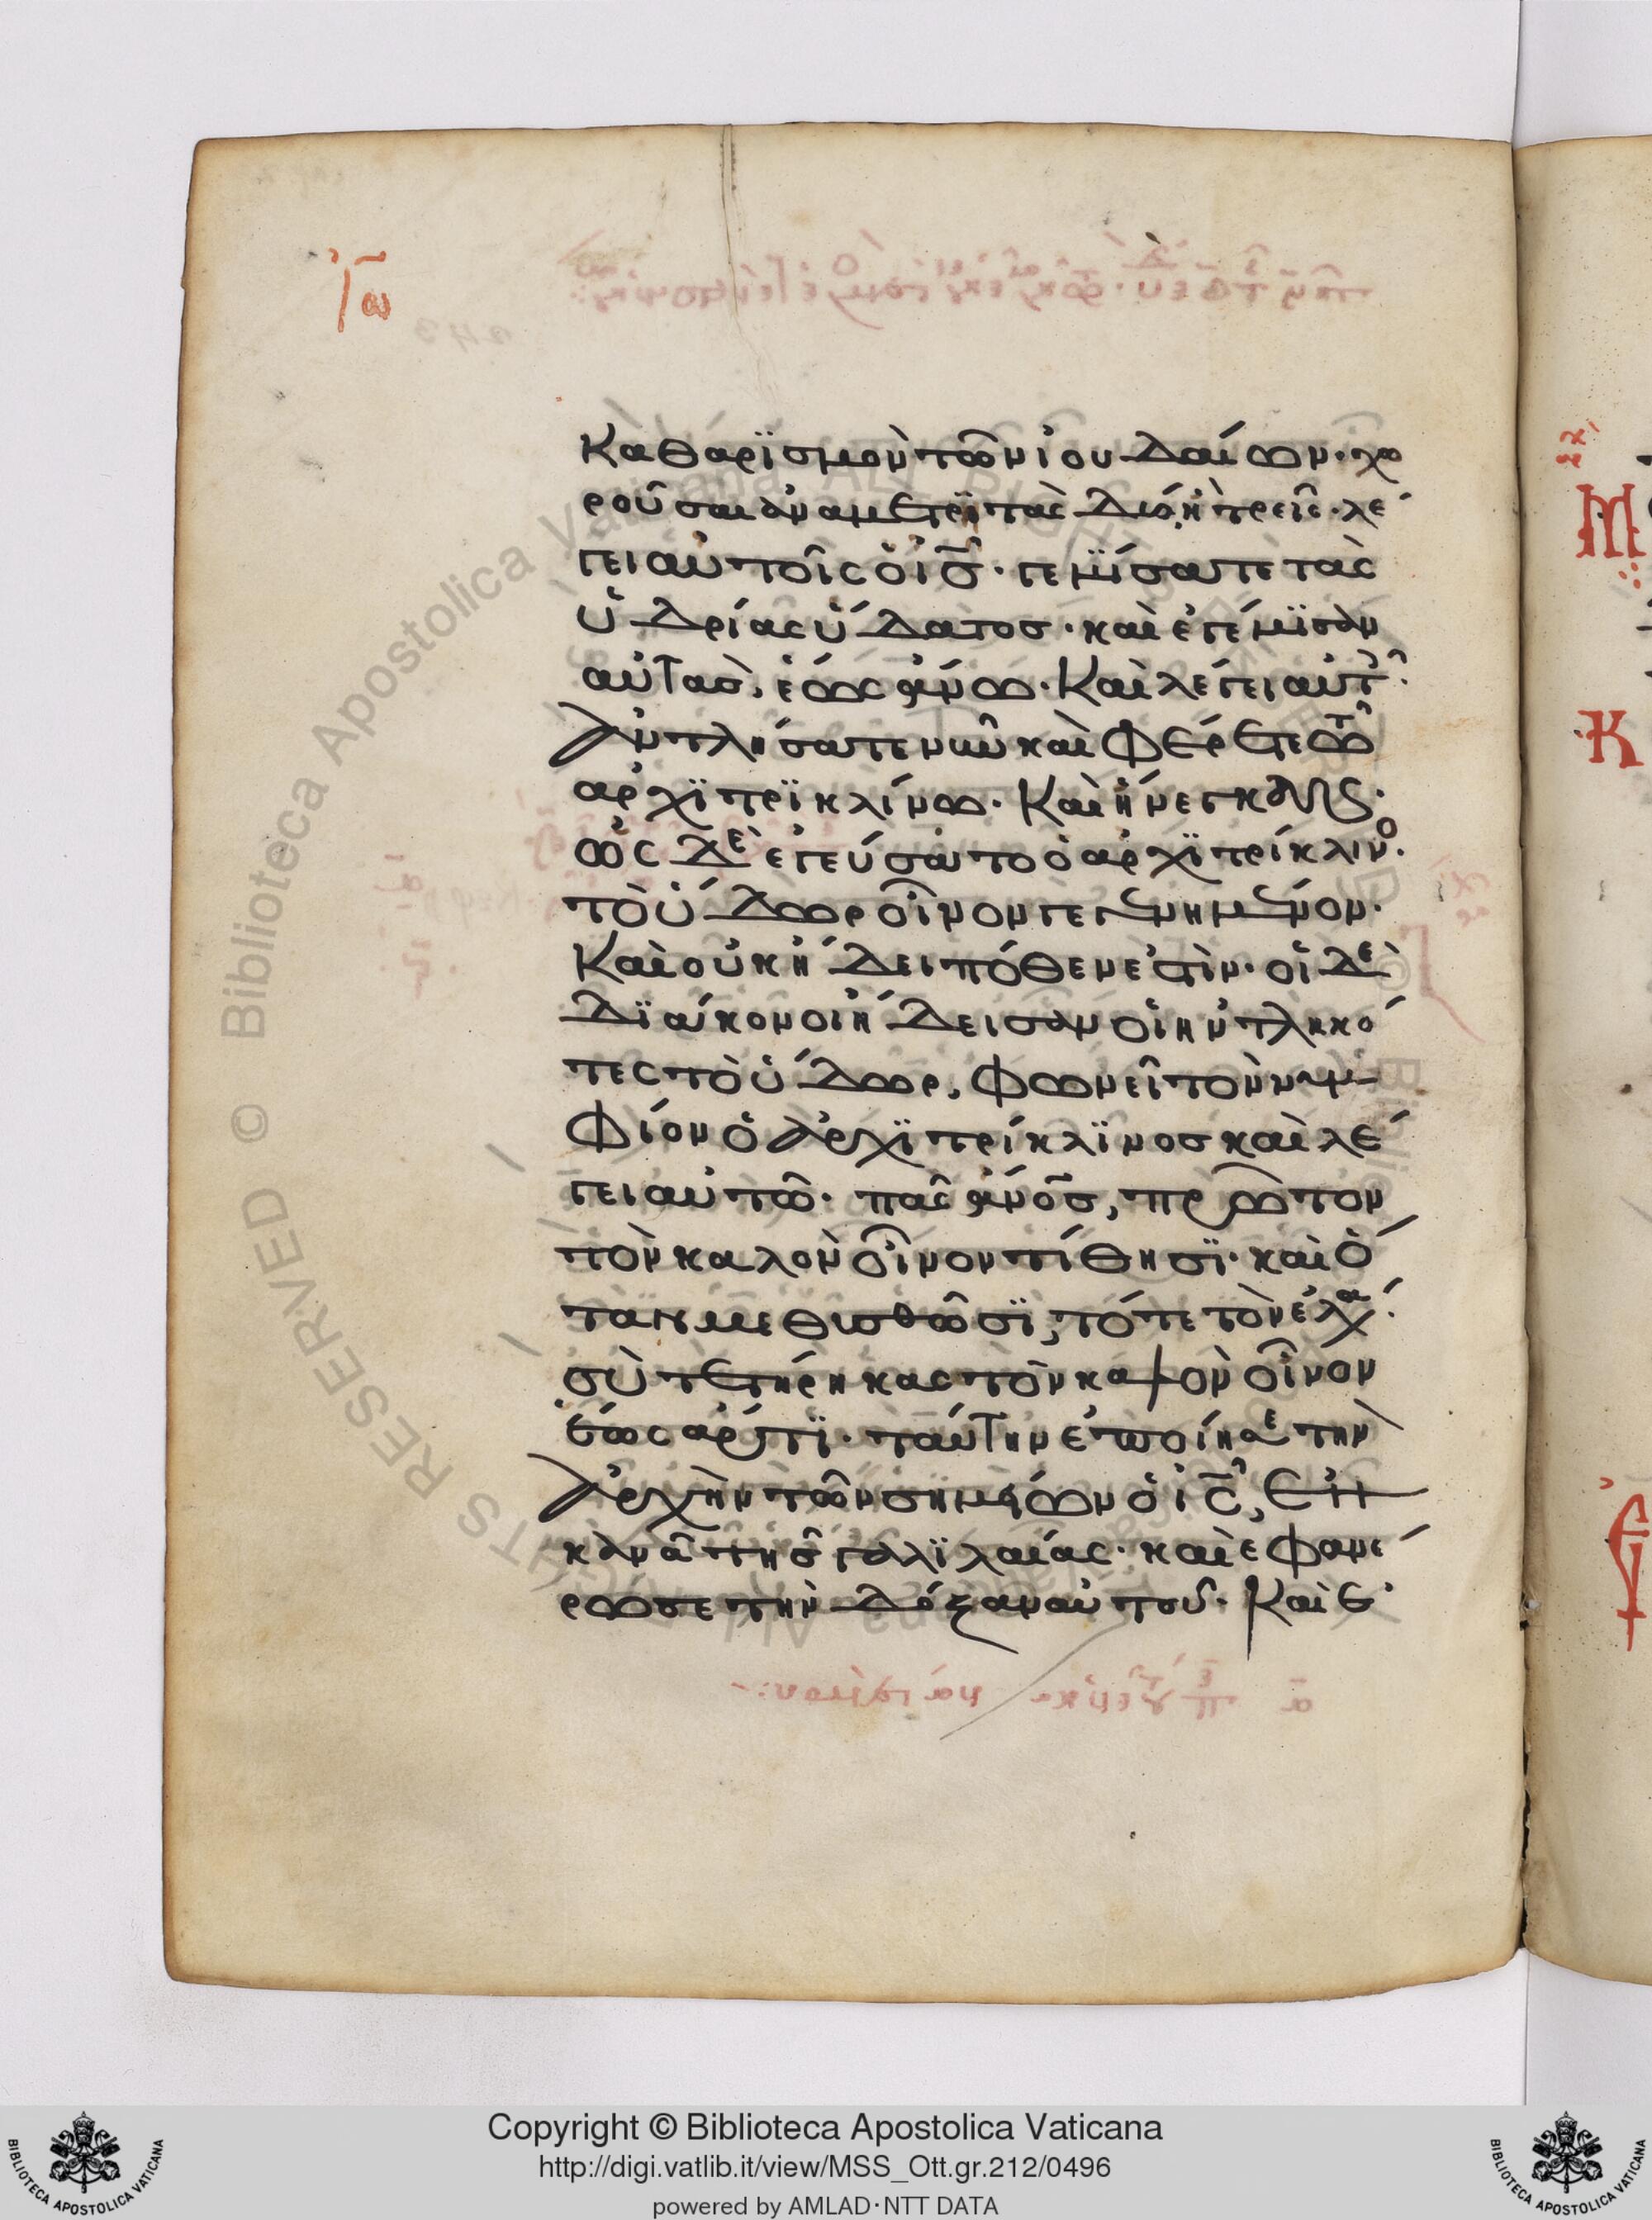 Ἰω
καθαρϊσμὸν τῶν ἰουδαίων· χω
ροῦσαι ἀναμετρϊτὰς δύο, ἢ τρεῖς· λέ
γει αὐτοῖς ὁ ις· γεμϊσατε τὰς
ὑδρίας ὕδατος· καὶ ἐγέμϊσαν
αὐτὰς, ἕως ἄνω. Καὶ λέγει αὐτ·
Ἀντλήσατε νῦν καὶ φέρετε τῷ
ἀρχϊτρϊκλίνω. Καὶ ἤνεγκαν·
ὡς δὲ ἐγεύσατο ὁ ἀρχϊτρίκλινο·
τὸ ὕδωρ οἶνον γεγενημένον·
Καὶ οὐκ ἤδει πόθεν ἐστὶν· οἱ δὲ
δϊάκονοι ἤδεισαν οἱ ἠντληκό
τες τὸ ὕδωρ, φωνεῖ τὸν νυμ
φίον ὁ ἀρχϊτρίκλϊνος καὶ λέ
γει αὐτῶ· πᾶς ἄνος, πρῶτον
τὸν καλὸν οἶνον τίθησϊ· καὶ ὅ
ταν μεθισθῶσϊ, τότε τὸν ἐλά·
σὺ τετήρηκας τὸν καλὸν οἶνον
ἕως ἄρτϊ· ταύτην ἐποίησε τὴν
Ἀρχὴν τῶν σημείων ὁ ις, ἐν
κανᾶ τῆς γαλϊλαίας· καὶ ἐφανέ
ρωσε τὴν δόξαν αὐτοῦ. Καὶ ἐ
Μ
Κ
Copyright © Biblioteca Apostolica Vaticana
http://digi.vatlib.it/view/MSS_Ott.gr.212/0496
powered by AMLAD·NTT DATA
BIBLIOTECA APOSTOLICA VATICANA
BIBLIOTECA APOSTOLICA VATICANA